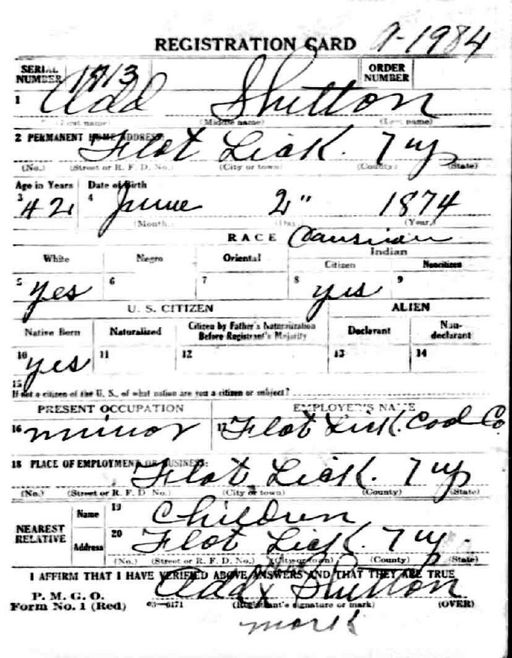 REGISTRATION CARD A-1984
SERIAL NUMBER 1713 ORDER NUMBER
1 Add Shutton
(First name) (Middle name) (Last name)
2 PERMANENT HOME ADDRESS:
Flat Lick. Ky
(No.) (Street or R. F. D. No.) (City or town) (County) (State)
Age in Years Date of Birth
3 42 4 June 2" 1874
(Month.) (Day.) (Year.)
RACE
White Negro Oriental Indian
Citizen Noncitizen
5 yes 6 7 8 yes 9
U. S. CITIZEN ALIEN
Native Born Naturalized Citizen by Father's Naturalization Before Registrant's Majority Declarant Non-declarant
10 yes 11 12 13 14
15
If not a citizen of the U. S., of what nation are you a citizen or subject?
PRESENT OCCUPATION EMPLOYER'S NAME
16 minor 17 Flat Lick. Coal Co
18 PLACE OF EMPLOYMENT OR BUSINESS:
Flat Lick. Ky
(No.) (Street or R. F. D. No.) (City or town) (County) (State)
NEAREST RELATIVE Name 19 Children
Address 20 Flat Lick. Ky.
(No.) (Street or R. F. D. No.) (City or town) (County) (State)
I AFFIRM THAT I HAVE VERIFIED ABOVE ANSWERS AND THAT THEY ARE TRUE
P. M. G. O.
Form No. 1 (Red) 03—6171 Add x Shutton
(Registrant's signature or mark) (OVER)
mark